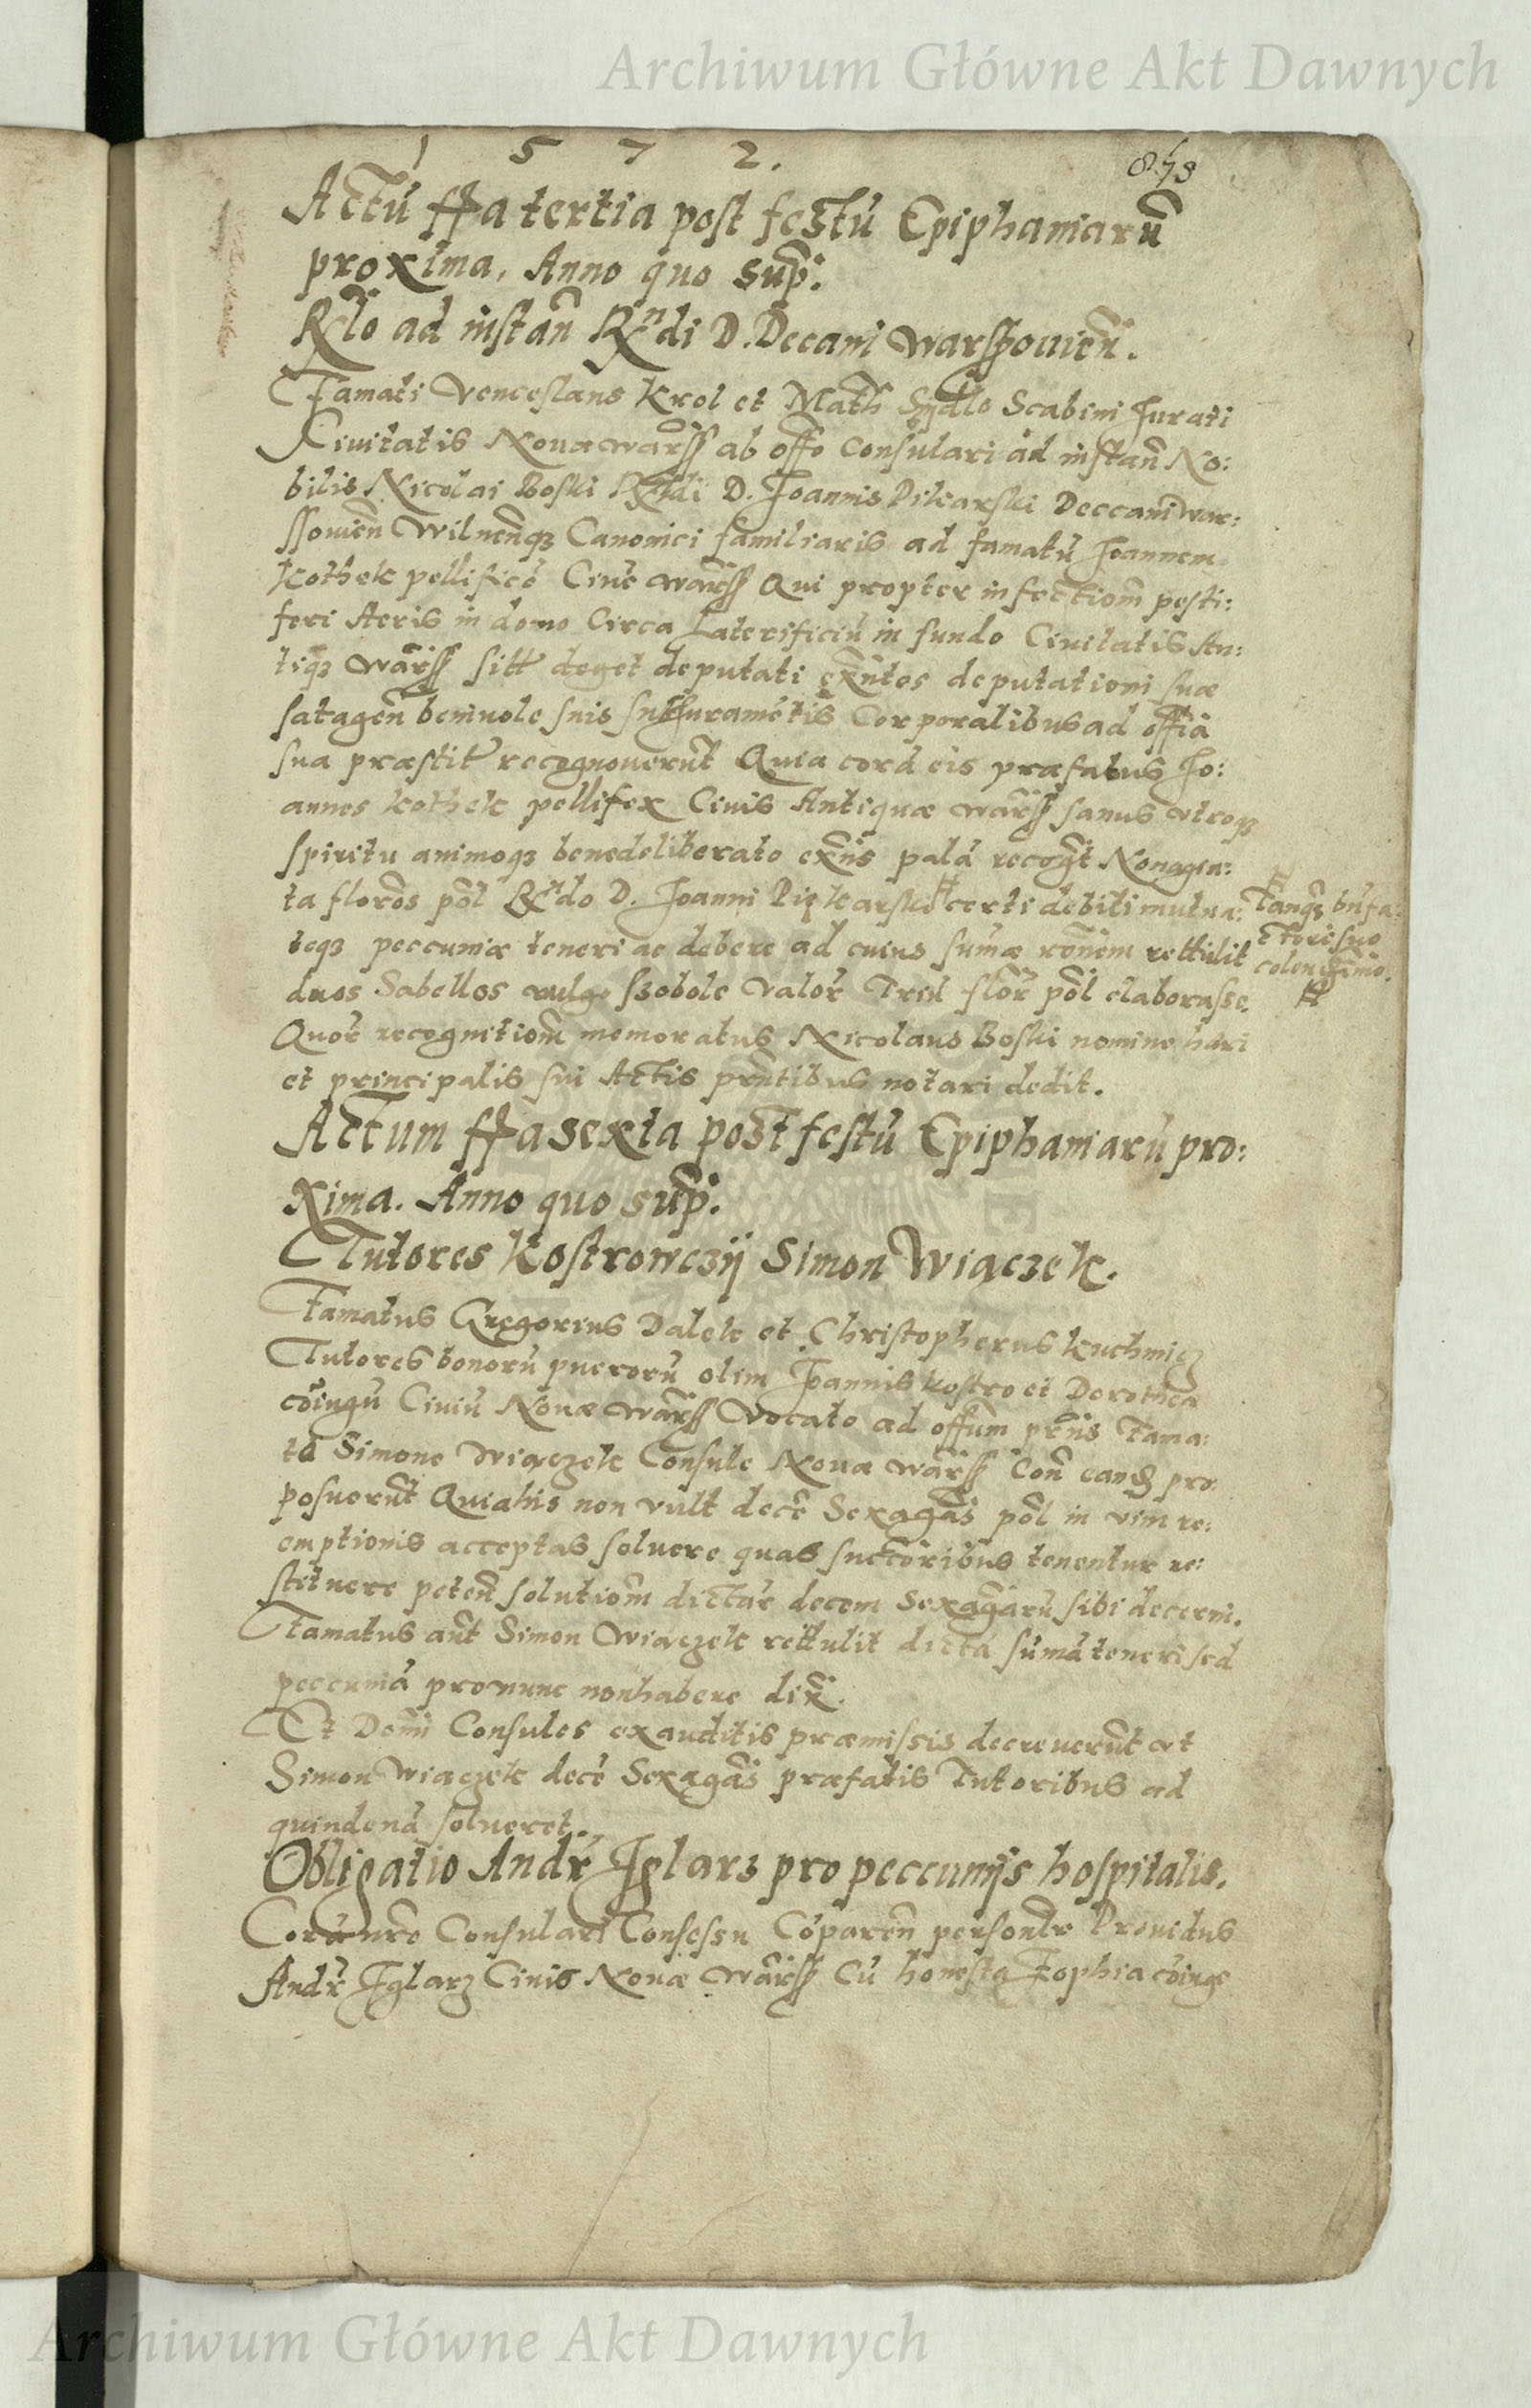 Archiwum Główne Akt Dawnych
1 5 7 2.
Actū ffa tertia post festū Epiphaniarū
proxima, Anno quo sup̄.
Rlo ad instan̄ Rndi D. Decani Warszouien̄.
Famati Venceslaus Krol et Math Sydlo Scabini Jurati
Ciuitatis Nouæ Warss ab offo Consulari ad instan̄ No:
bilis Nicolai Boski Rndi D. Joannis Pikarski Deccani War:
ssouien̄ Wilnen̄qꝫ Canonici familiaris ad famatū Joannem
Kothek pellificē Ciuē Warss Qui propter infectiom̄ pesti:
feri Aeris in domo Circa Laterificiū in fundo Ciuitatis An:
tiqꝫ Warss sitt deget deputati exn̄tes deputationi suæ
satagen̄ beniuole suis sub Juramētis Corporalibus ad offia
sua præstit recognouerūt Quia corā eis præfatus Jo:
annes Kothek pellifex Ciuis Antiquæ Warss sanus vtroqꝫ
spiritu animoqꝫ benedeliberato exn̄s palā recogt Nonagin:
ta floros pōl Rndo D. Joanni Piekarski certi debiti mutua: Tanqꝫ bn̄fa:
teqꝫ peccuniæ teneri ac debere ad cuius sum̄æ ron̄em rettulit ctori suo
duos Sabellos vulgo szobole valor Triū flor pōl elaborasse. colendissimo.
Quor recognitiom̄ memoratus Nicolaus Boski nomine hæri
et principalis sui Actis prn̄tibus notari dedit.
Actum ffa sexta post festū Epiphaniarū pro:
xima. Anno quo sup̄.
Tutores Kostrowczÿ Simon Wiączek.
Famatus Gregorius Dalek et Christopherus Kuchmicz
Tutores bonorū puerorū olim Joannis Kostro et Dorothea
cōiugū Ciuiū Nouæ Warss Vocato ad offm̄ prn̄s Fama:
to Simone Wiączek Consule Nouæ Warss Con̄ eand pro:
posuerūt Quia his non vult decē Sexagās pōl in vim re:
emptionis acceptas soluere quas succoribus tenentur re:
stituere peten̄ solutiom̄ dictar decem Sexagarū sibi decerni.
Famatus aūt Simon Wiączek rettulit dictā sumā teneri sed
peccuniā pronunc nonhabere dix̄.
Et Domī Consules exauditis præmissis decreuerūt vt
Simon Wiączek decē Sexagās præfatis Tutoribus ad
quindenā solueret.
Obligatio Andr Iglarz pro peccunÿs hospitalis.
Coram nro Consulari Consessu Cōparen̄ personlr Prouidus
Andr Iglarz Ciuis Nouæ Warss Cū honesta Zophia cōiuge
Archiwum Główne Akt Dawnych